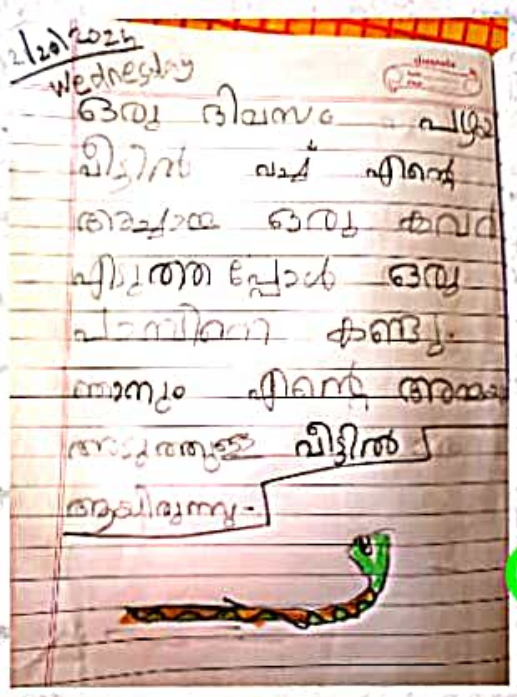 Wednesday
ഒരു ദിവസം പഴയ
വീട്ടിൽ വച്ച് എന്റെ
അച്ചാമ്മ ഒരു കവർ
എടുത്തപ്പോൾ ഒരു
പാമ്പിനെ കണ്ടു.
ഞാനും എന്റെ അമ്മയു
അടുത്തുള്ള വീട്ടിൽ
ആയിരുന്നു.